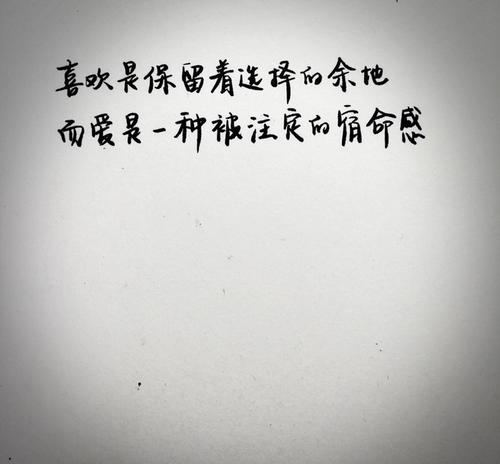 喜欢是保留着选择的余地
而爱是一种被注定的宿命感